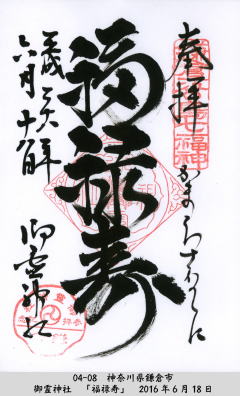 奉拝
かまくら
福禄寿
平成二八年
六月十八日
御霊神社
04-08 神奈川県鎌倉市
御霊神社 「福禄寿」 2016年6月18日